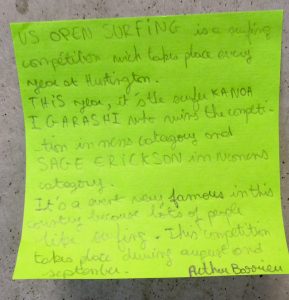 US OPEN SURFING is a surfing
competition wich takes place every
year at Huntington.
THIS year, it's the surfer KANOA
IGARASHI who wins the competi-
-tion in mens category and
SAGE ERICKSON in womens
category.
It's a event very famous in this
country because lots of people
like surfing. This competition
takes place during august and
september.
Arthur